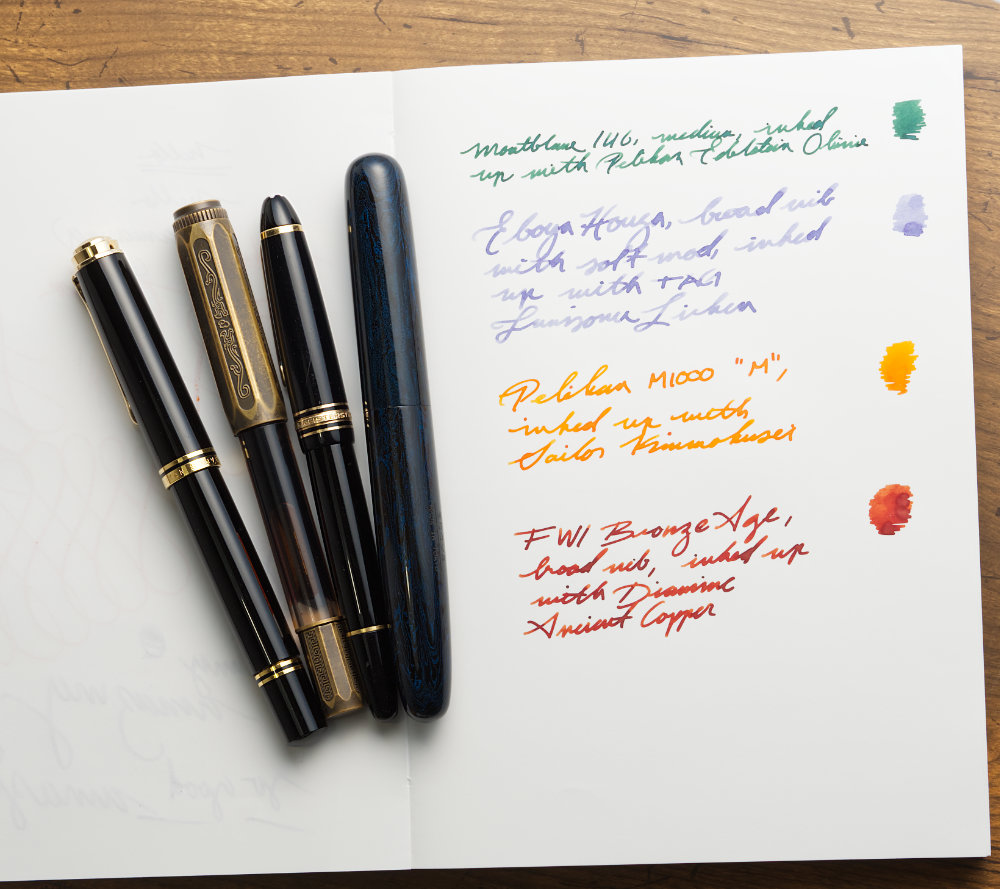 Montblanc 146, medium, inked
up with Pelikan Edelstein Olivine
Eboya Houga, broad nib
with soft mod, inked
up with TAG
Lichen
Pelikan M1000 "M",
inked up with
Sailor Kinmokusei
FWI Bronze Age,
broad nib, inked up
with Diamine
Ancient Copper